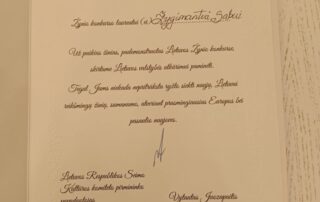 Žinių konkurso laureatui (ei) Žygimantui Šabui
Už puikias žinias, pademonstruotas Lietuvos Žinių konkurse,
skirtame Lietuvos valstybės atkūrimui paminėti.
Tegul Jums niekada nepritrūksta ryžto siekti naujų, Lietuvai
reikšmingų žinių, sumanumo, atveriant prasmingiausius Europos bei
pasaulio
Lietuvos Respublikos Seimo
Kultūros komiteto pirmininko
pavaduotojas
Vytautas Juozapaitis